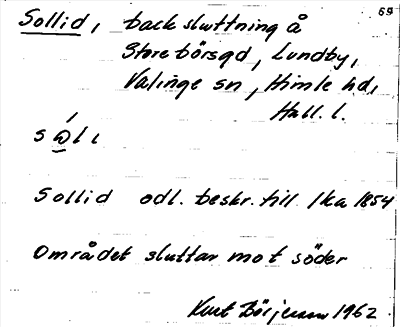 59
Sollid, backsluttning å
Storebörsgd, Lundby,
Valinge sn, Himle hd,
Hall. l.
Sollid odl. beskr. till lka 1854
Området sluttar mot söder
Kurt Börjesson 1962